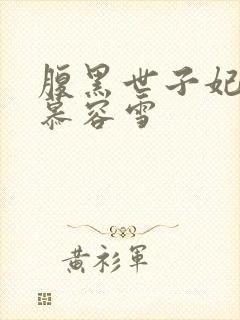 腹黑世子妃
慕容雪
黃衫軍